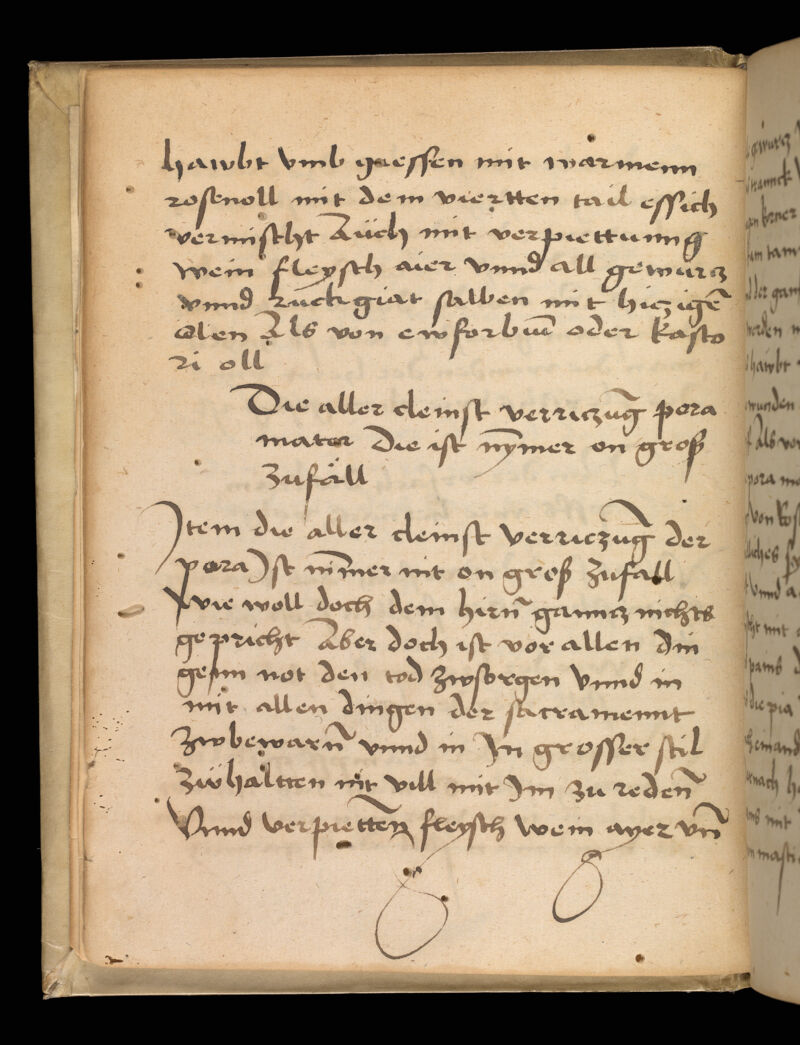 hawbt vmb giessen mit warmenn
rosenoll mit dem viertten tail essich
vermischt Auch mit verpiettunng
wein fleysch aier vnnd all gewurcz
vnnd ruckgrat salben mit hiczigē
olen Als von ewforbiū oder kasto
ri oll
Die aller cleinst verriczūg pera
mater Die ist nȳmer on groß
zufäll
Item die aller cleinst verriczūg der
pera Ist nīmer nit on groß zufall
Wie woll doch dem hirn̄ ganncz nichts
gepricht Aber doch ist vor allen din
genn not den tod zwsorgen Vnnd in
mit allen dingen der sacramennt
zwbewarn̄ vnnd in In grosser stil
zwhaltten nit vill mit Im zu reden̄
Vnnd verpietten fleysch wein ayer vn̄